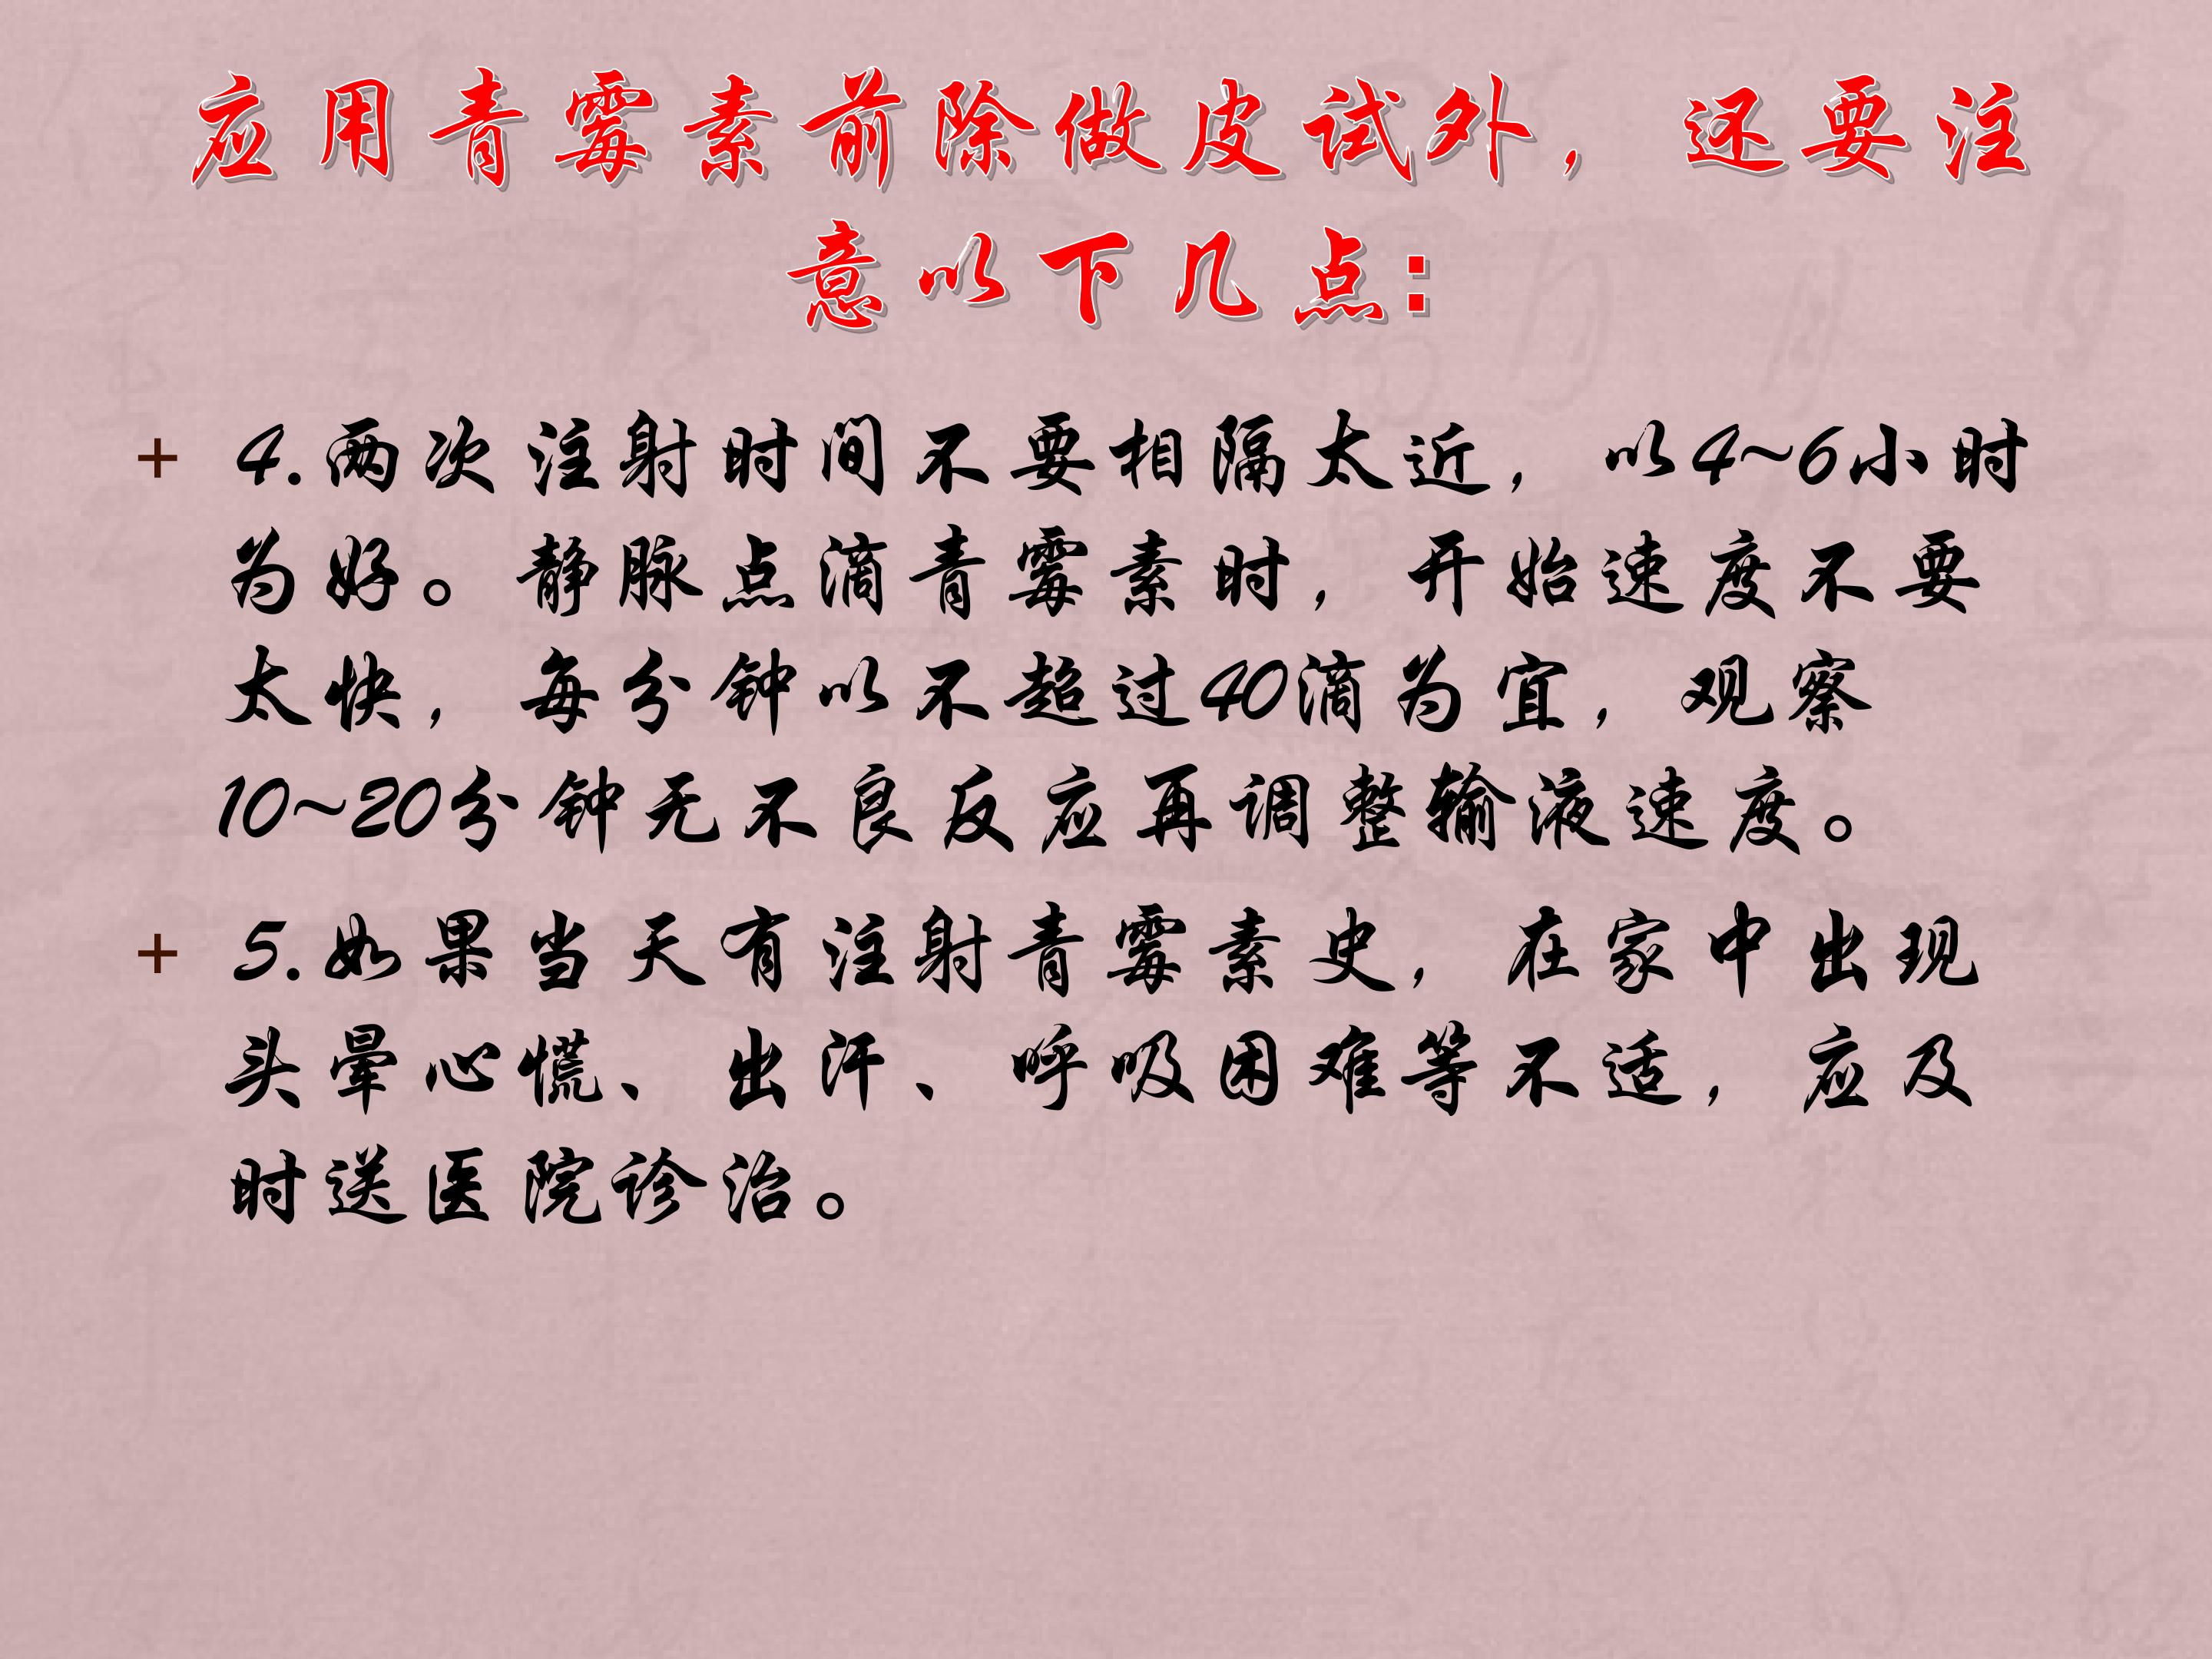 应用青霉素前除做皮试外，还要注
意以下几点:
+ 4.两次注射时间不要相隔太近，以4~6小时
为好。静脉点滴青霉素时，开始速度不要
太快，每分钟以不超过40滴为宜，观察
10~20分钟无不良反应再调整输液速度。
+ 5.如果当天有注射青霉素史，在家中出现
头晕心慌、出汗、呼吸困难等不适，应及
时送医院诊治。